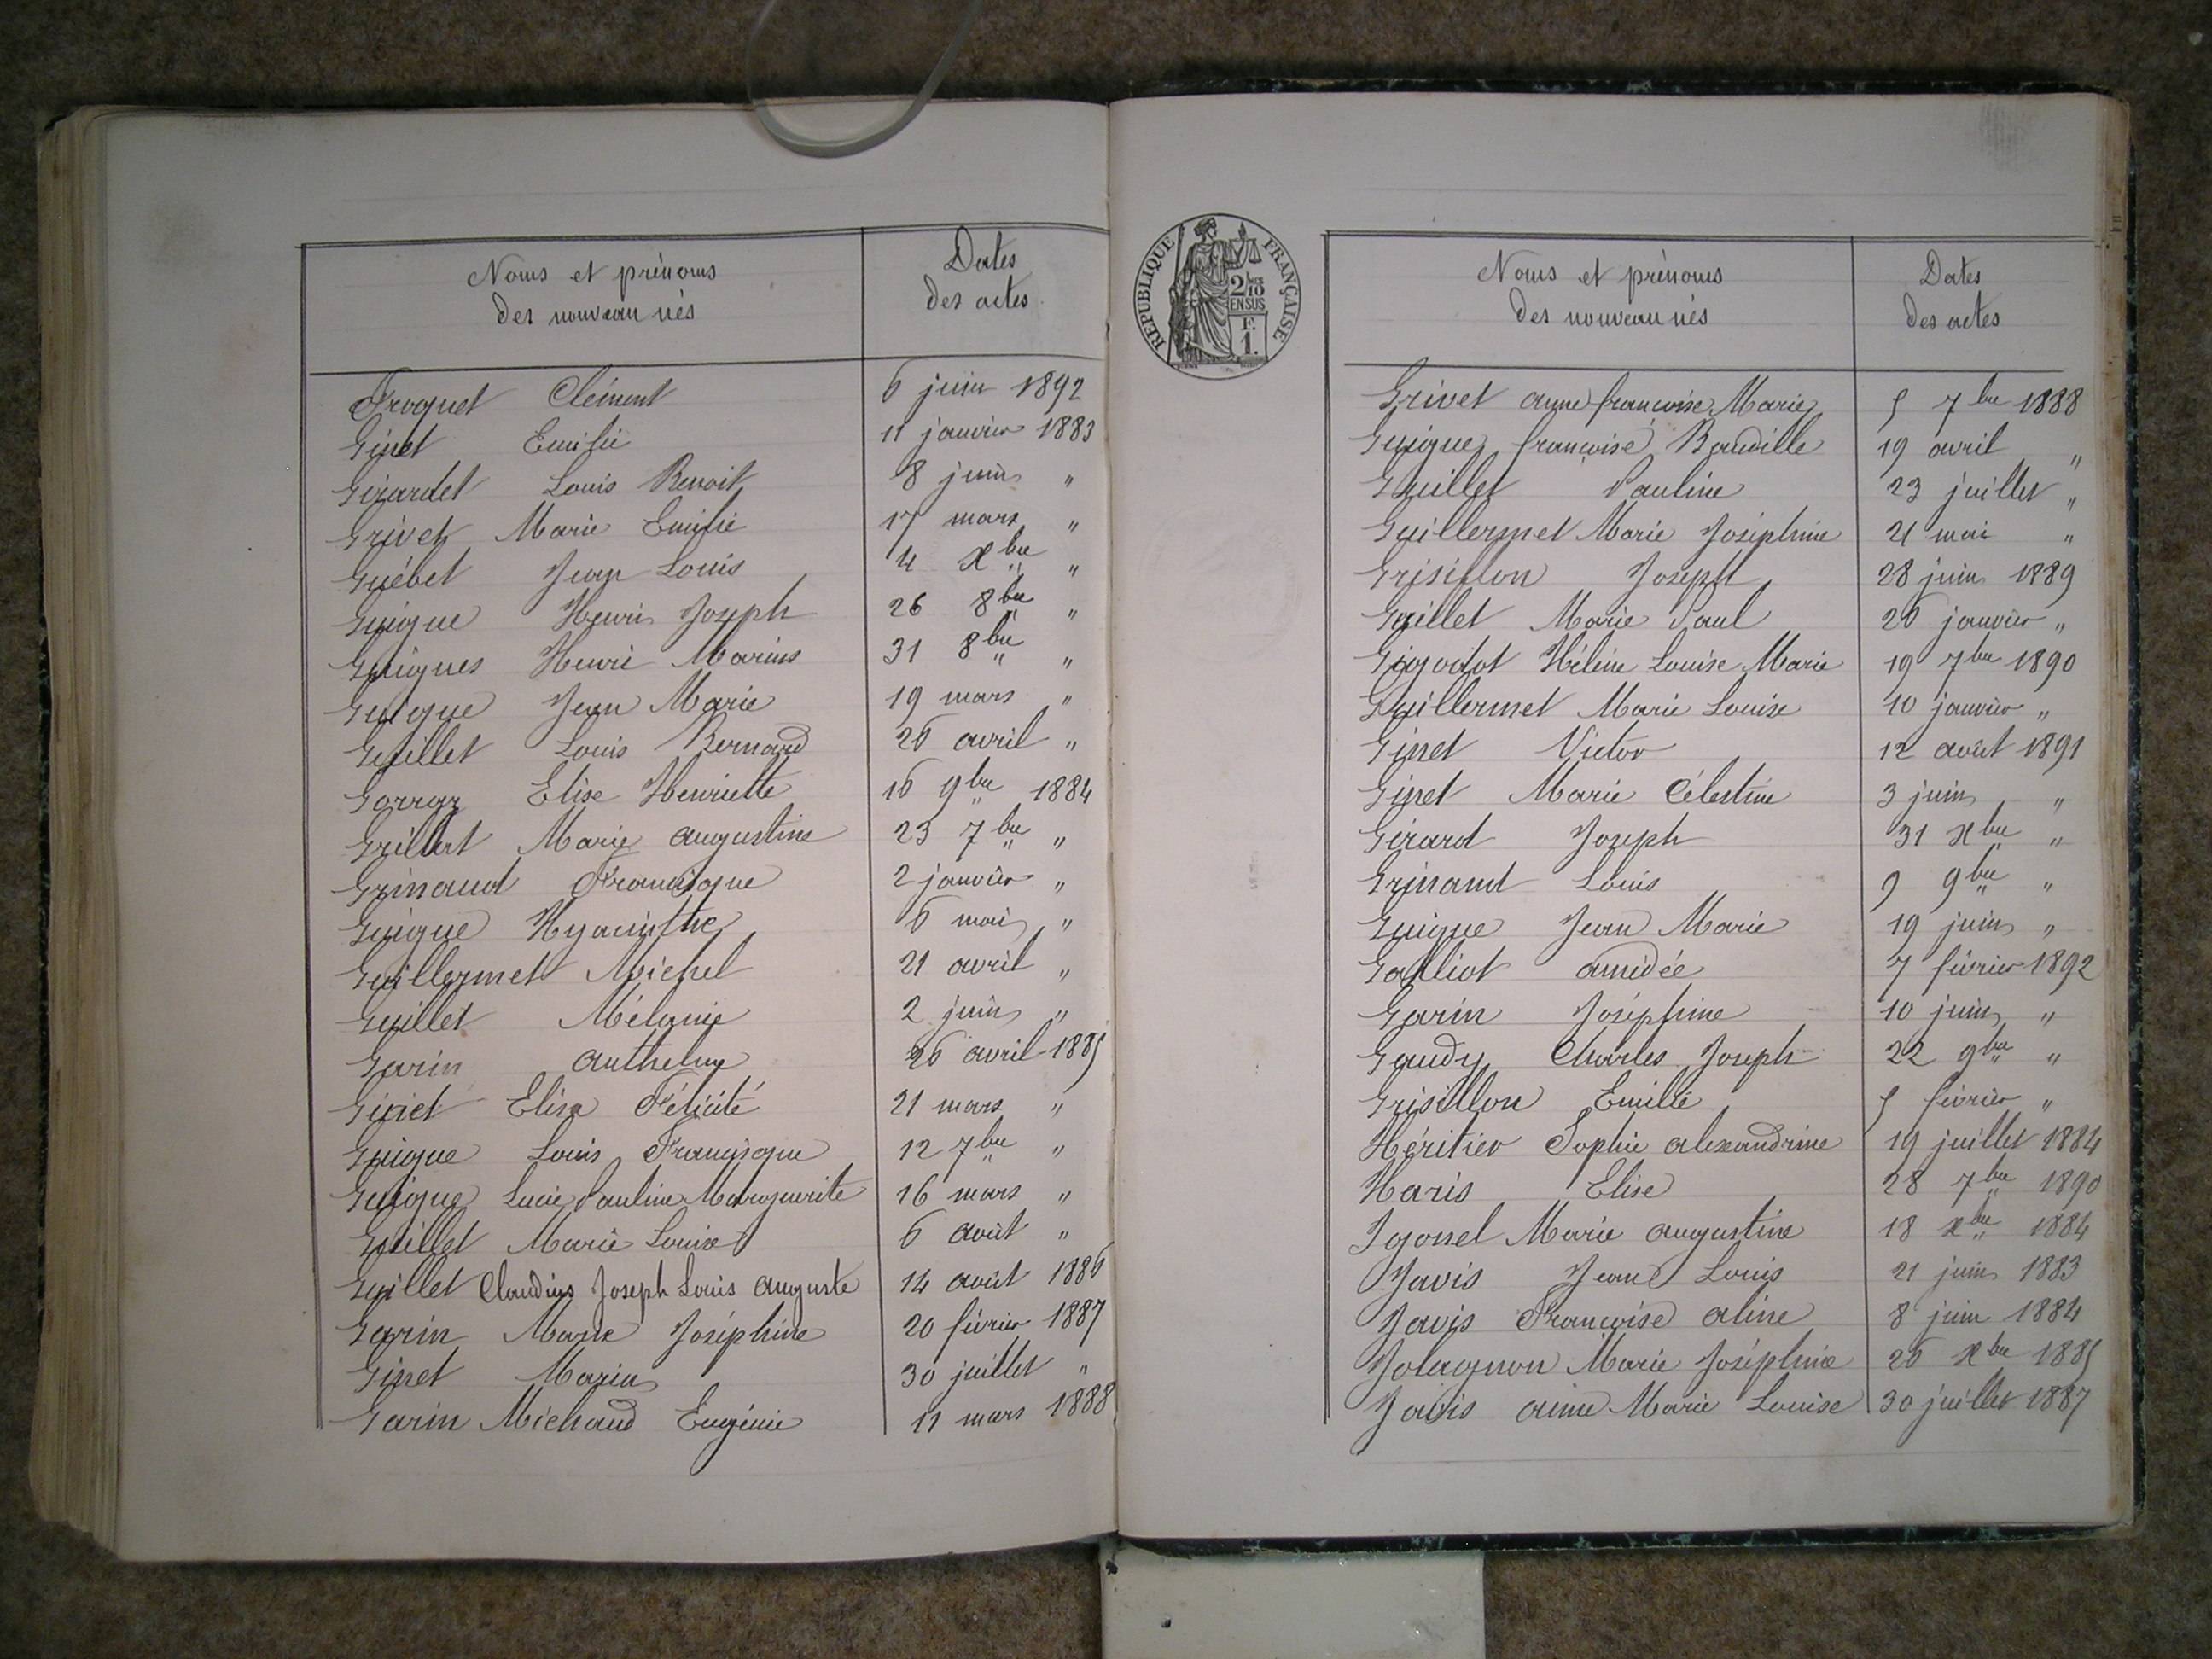 Noms et prénoms
des nouveau nés
Dates
des actes
Froquet Clément 6 juin 1892
Ginet Emilie 11 janvier 1883
Girardet Louis Benoit 8 juin "
Grivet Marie Emilie 17 mars "
Guébet Jean Louis 4 Xbre "
Guigue Henri Joseph 26 8bre "
Guigues Henri Marius 31 8bre "
Guigue Jean Marie 19 mars "
Guillet Louis Bernard 26 avril "
Gorraz Elise Henriette 16 9bre 1884
Grillet Marie Augustine 23 7bre "
Grinand Francisque 2 janvier "
Guigue Hyacinthe 6 mai "
Guillermet Michel 21 avril "
Guillet Mélanie 2 juin "
Garin Anthelme 26 avril 1885
Ginet Elisa Félicité 21 mars "
Guigue Louis Francisque 12 7bre "
Guigue Lucie Pauline Marguerite 16 mars "
Guillet Marie Louise 6 août "
Guillet Claudius Joseph Louis Auguste 14 août 1886
Garin Marie Joséphine 20 février 1887
Ginet Marius 30 juillet "
Garin Michaud Eugénie 11 mars 1888
REPUBLIQUE FRANÇAISE
2/10
EN SUS
F.
1.
Noms et prénoms
des nouveau nés
Dates
des actes
Grivet Anne françoise Marie 5 7bre 1888
Guigue françoise Baudille 19 avril "
Guillet Pauline 23 juillet "
Guillermet Marie Joséphine 21 mai "
Grisillon Joseph 28 juin 1889
Guillet Marie Paul 26 janvier "
Gigodot Hélène Louise Marie 19 7bre 1890
Guillermet Marie Louise 10 janvier "
Ginet Victor 12 août 1891
Ginet Marie Célestine 3 juin "
Girard Joseph 31 Xbre "
Grinand Louis 9 9bre "
Guigue Jean Marie 19 juin "
Galliot Amédée 7 février 1892
Garin Joséphine 10 juin "
Gaudy Charles Joseph 22 9bre "
Grisillon Emilie 5 février "
Héritier Sophie Alexandrine 19 juillet 1884
Haris Elise 28 7bre 1890
Igonel Marie Augustine 18 Xbre 1884
Javis Jean Louis 21 juin 1883
Javis Françoise Aline 8 juin 1884
Jolagnon Marie Joséphine 26 Xbre 1885
Javis Anne Marie Louise 30 juillet 1887